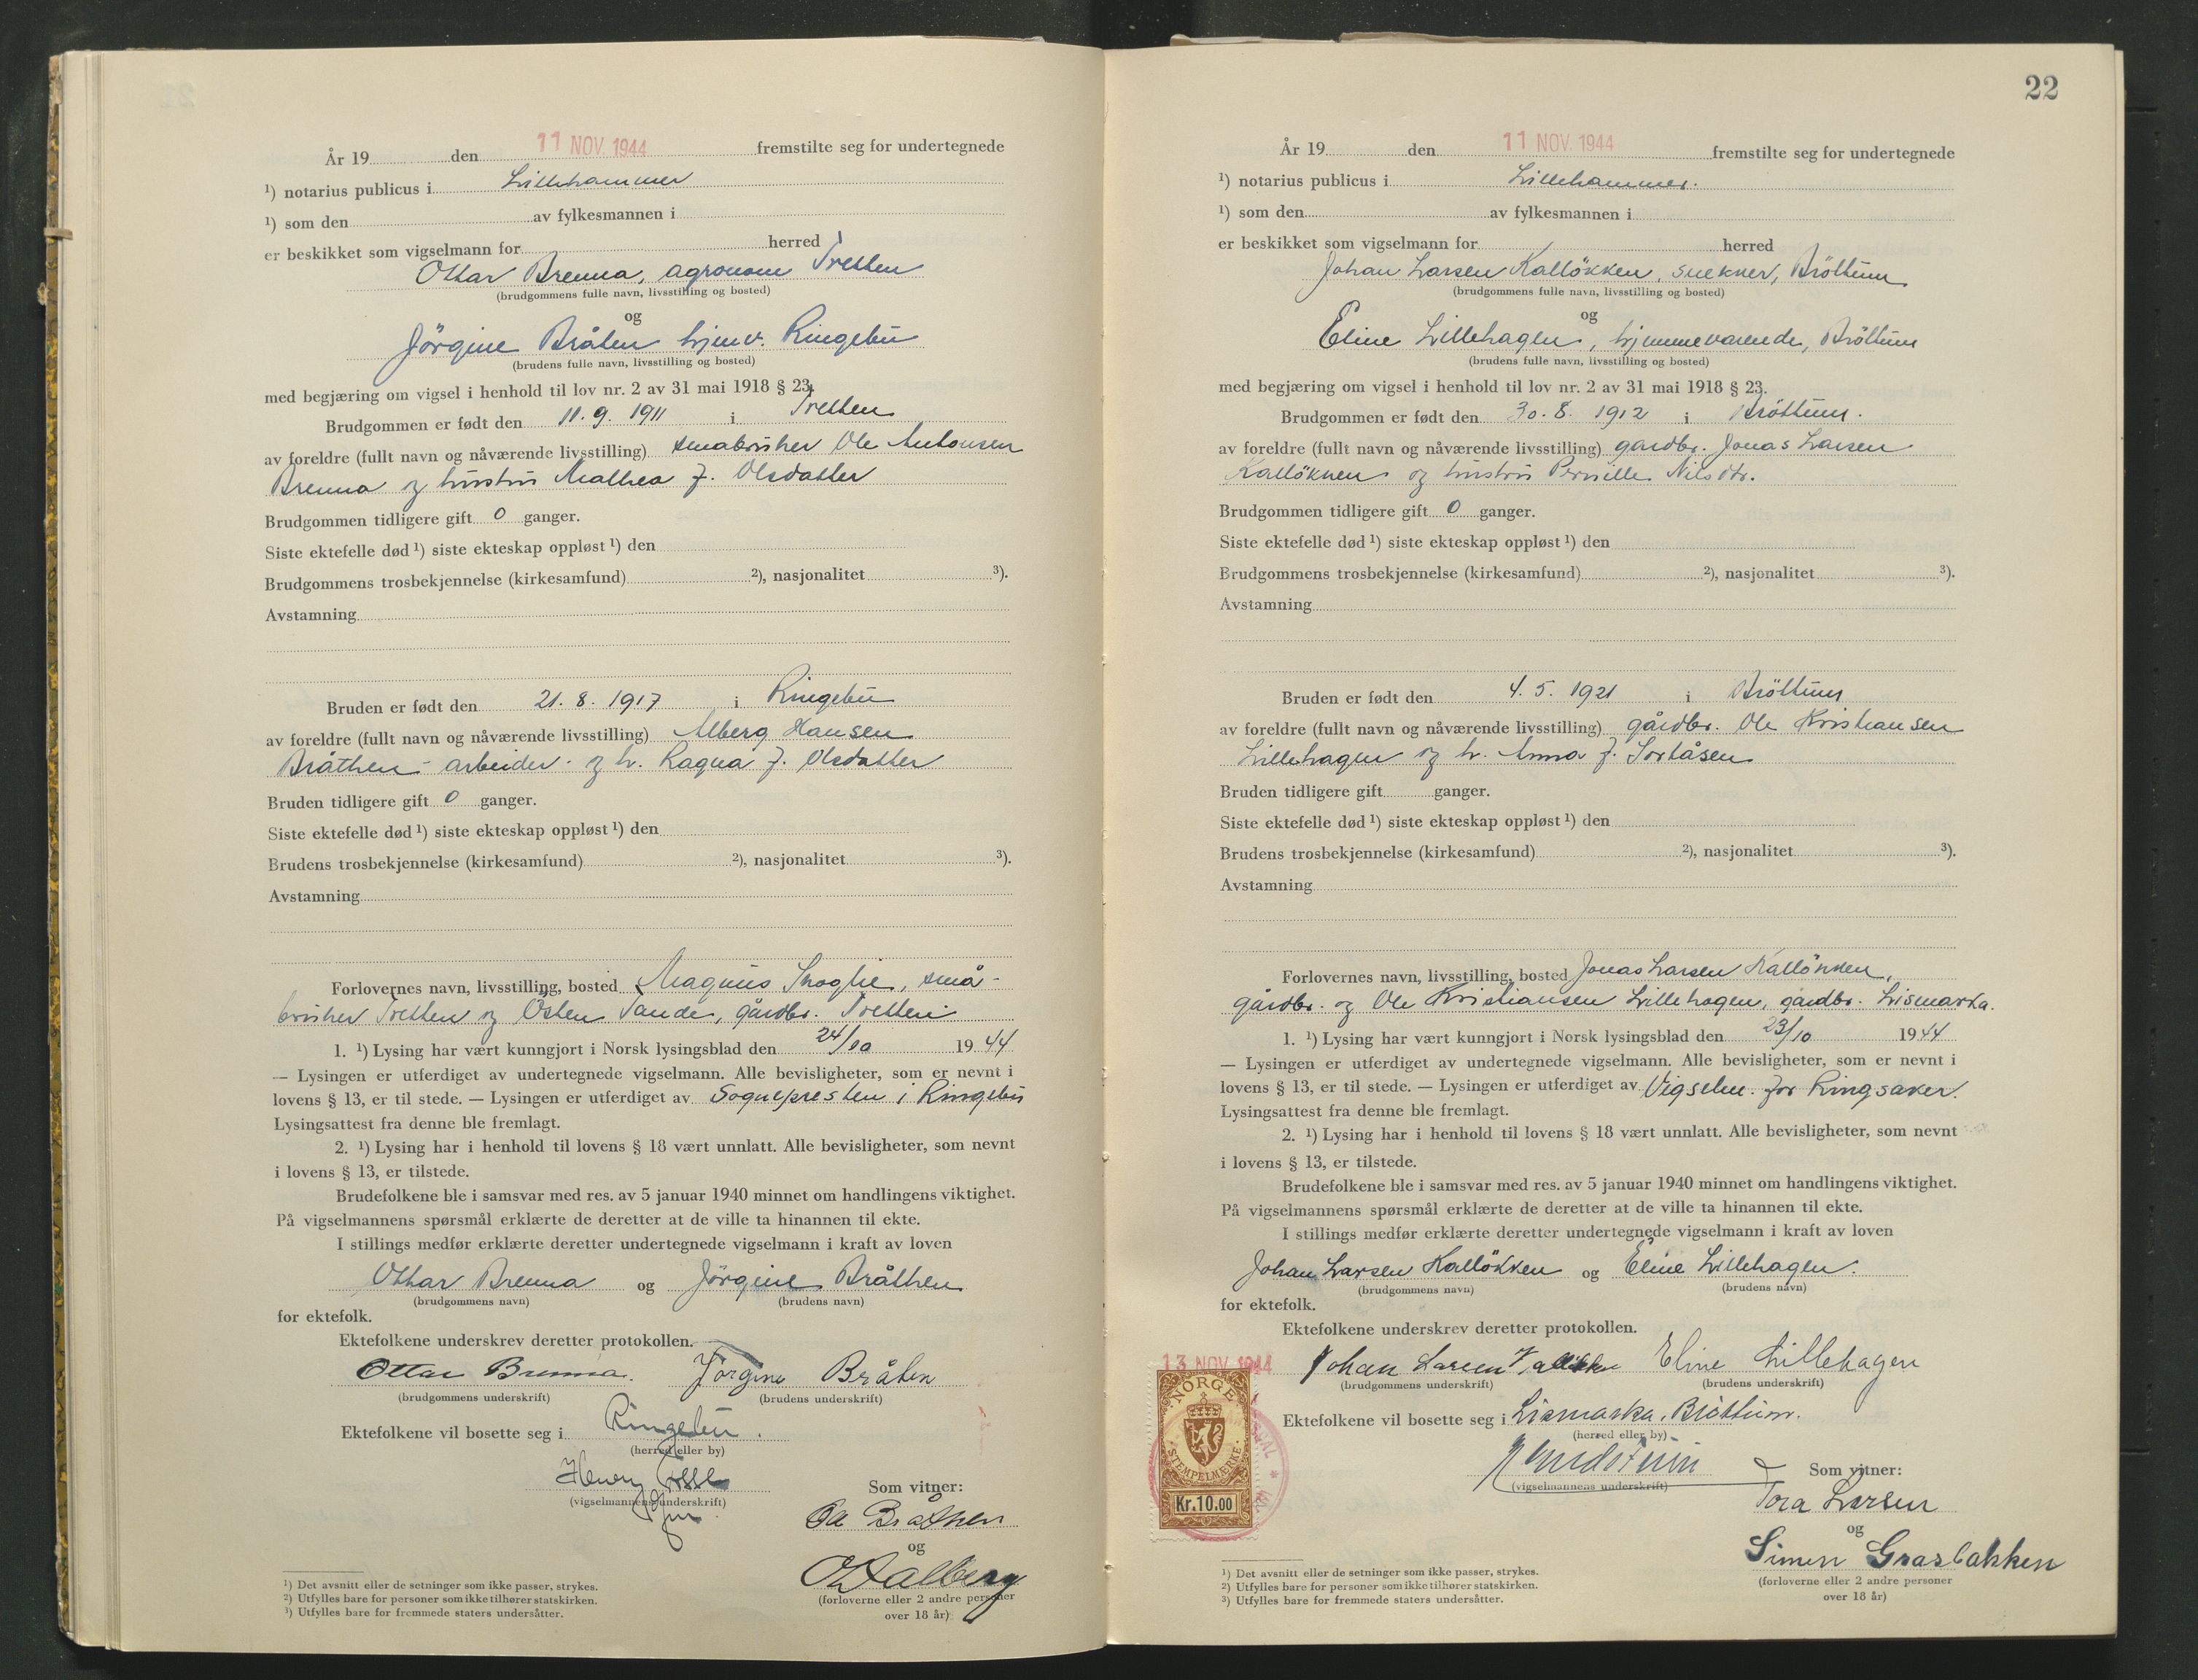 År 19 den 11 NOV. 1944 fremstilte seg for undertegnede
¹) notarius publicus i Lillehammer
¹) som den av fylkesmannen i
er beskikket som vigselmann for herred
Ottar Brenna, agronom Tretten
(brudgommens fulle navn, livsstilling og bosted)
og
Jörgine Bråten hjemv. Ringebu
(brudens fulle navn, livsstilling og bosted)
med begjæring om vigsel i henhold til lov nr. 2 av 31 mai 1918 § 23.
Brudgommen er født den 11. 9. 1911 i Tretten
av foreldre (fullt navn og nåværende livsstilling) småbruker Ole Antonsen
Brenna og hustru Mathea f. Olsdatter
Brudgommen tidligere gift 0 ganger.
Siste ektefelle død ¹) siste ekteskap oppløst ¹) den
Brudgommens trosbekjennelse (kirkesamfund) ²), nasjonalitet ³).
Avstamning
Bruden er født den 21. 8. 1917 i Ringebu
av foreldre (fullt navn og nåværende livsstilling) Alberg Hansen
Bråthen - arbeider - og h. Ragna f. Olsdatter
Bruden tidligere gift 0 ganger.
Siste ektefelle død ¹) siste ekteskap oppløst ¹) den
Brudens trosbekjennelse (kirkesamfund) ²), nasjonalitet ³).
Avstamning
Forlovernes navn, livsstilling, bosted Magnus Skoglie, små-
bruker Tretten og Östen Sande, gårdbr. Tretten
1. ¹) Lysing har vært kunngjort i Norsk lysingsblad den 24/10 1944
— Lysingen er utferdiget av undertegnede vigselmann. Alle bevisligheter, som er nevnt i
lovens § 13, er til stede. — Lysingen er utferdiget av Sognepresten i Ringebu
Lysingsattest fra denne ble fremlagt.
2. ¹) Lysing har i henhold til lovens § 18 vært unnlatt. Alle bevisligheter, som nevnt
i lovens § 13, er tilstede.
Brudefolkene ble i samsvar med res. av 5 januar 1940 minnet om handlingens viktighet.
På vigselmannens spørsmål erklærte de deretter at de ville ta hinannen til ekte.
I stillings medfør erklærte deretter undertegnede vigselmann i kraft av loven
Ottar Brenna og Jörgine Bråthen
(brudgommens navn) (brudens navn)
for ektefolk.
Ektefolkene underskrev deretter protokollen.
Ottar Brenna. Jörgine Bråten
(brudgommens underskrift) (brudens underskrift)
Ektefolkene vil bosette seg i Ringebu.
(herred eller by)
Henry
(vigselmannens underskrift)
Som vitner:
Ola Bråthen
og
O Dalberg
(forloverne eller 2 andre personer
over 18 år)
¹) Det avsnitt eller de setninger som ikke passer, strykes.
²) Utfylles bare for personer som ikke tilhører statskirken.
³) Utfylles bare for fremmede staters undersåtter.
22
År 19 den 11 NOV. 1944 fremstilte seg for undertegnede
¹) notarius publicus i Lillehammer.
¹) som den av fylkesmannen i
er beskikket som vigselmann for herred
Johan Larsen Kallökken, snekker, Bröttum
(brudgommens fulle navn, livsstilling og bosted)
og
Eline Lillehagen, hjemmeværende, Bröttum
(brudens fulle navn, livsstilling og bosted)
med begjæring om vigsel i henhold til lov nr. 2 av 31 mai 1918 § 23.
Brudgommen er født den 30. 8. 1912 i Bröttum.
av foreldre (fullt navn og nåværende livsstilling) gårdbr. Jonas Larsen
Kallökken og hustru Pernille Nilsdtr.
Brudgommen tidligere gift 0 ganger.
Siste ektefelle død ¹) siste ekteskap oppløst ¹) den
Brudgommens trosbekjennelse (kirkesamfund) ²), nasjonalitet ³).
Avstamning
Bruden er født den 4. 5. 1921 i Bröttum
av foreldre (fullt navn og nåværende livsstilling) gårdbr. Ole Kristiansen
Lillehagen og h. Anna f. Sortåsen
Bruden tidligere gift ganger.
Siste ektefelle død ¹) siste ekteskap oppløst ¹) den
Brudens trosbekjennelse (kirkesamfund) ²), nasjonalitet ³).
Avstamning
Forlovernes navn, livsstilling, bosted Jonas Larsen Kallökken,
gårdbr. og Ole Kristiansen Lillehagen, gårdbr. Lismarka.
1. ¹) Lysing har vært kunngjort i Norsk lysingsblad den 23/10 1944
— Lysingen er utferdiget av undertegnede vigselmann. Alle bevisligheter, som er nevnt i
lovens § 13, er til stede. — Lysingen er utferdiget av Vigselm. for Ringsaker.
Lysingsattest fra denne ble fremlagt.
2. ¹) Lysing har i henhold til lovens § 18 vært unnlatt. Alle bevisligheter, som nevnt
i lovens § 13, er tilstede.
Brudefolkene ble i samsvar med res. av 5 januar 1940 minnet om handlingens viktighet.
På vigselmannens spørsmål erklærte de deretter at de ville ta hinannen til ekte.
I stillings medfør erklærte deretter undertegnede vigselmann i kraft av loven
Johan Larsen Kallökken og Eline Lillehagen.
(brudgommens navn) (brudens navn)
for ektefolk.
Ektefolkene underskrev deretter protokollen.
13 NOV 1944
Johan Larsen Kallökken Eline Lillehagen
(brudgommens underskrift) (brudens underskrift)
Ektefolkene vil bosette seg i Lismarka, Bröttum.
(herred eller by)
(vigselmannens underskrift)
NORGE
STEMPELMERKE
Kr.10.00
Som vitner:
Tora Larsen
og
Simen Grasbakken
(forloverne eller 2 andre personer
over 18 år)
¹) Det avsnitt eller de setninger som ikke passer, strykes.
²) Utfylles bare for personer som ikke tilhører statskirken.
³) Utfylles bare for fremmede staters undersåtter.